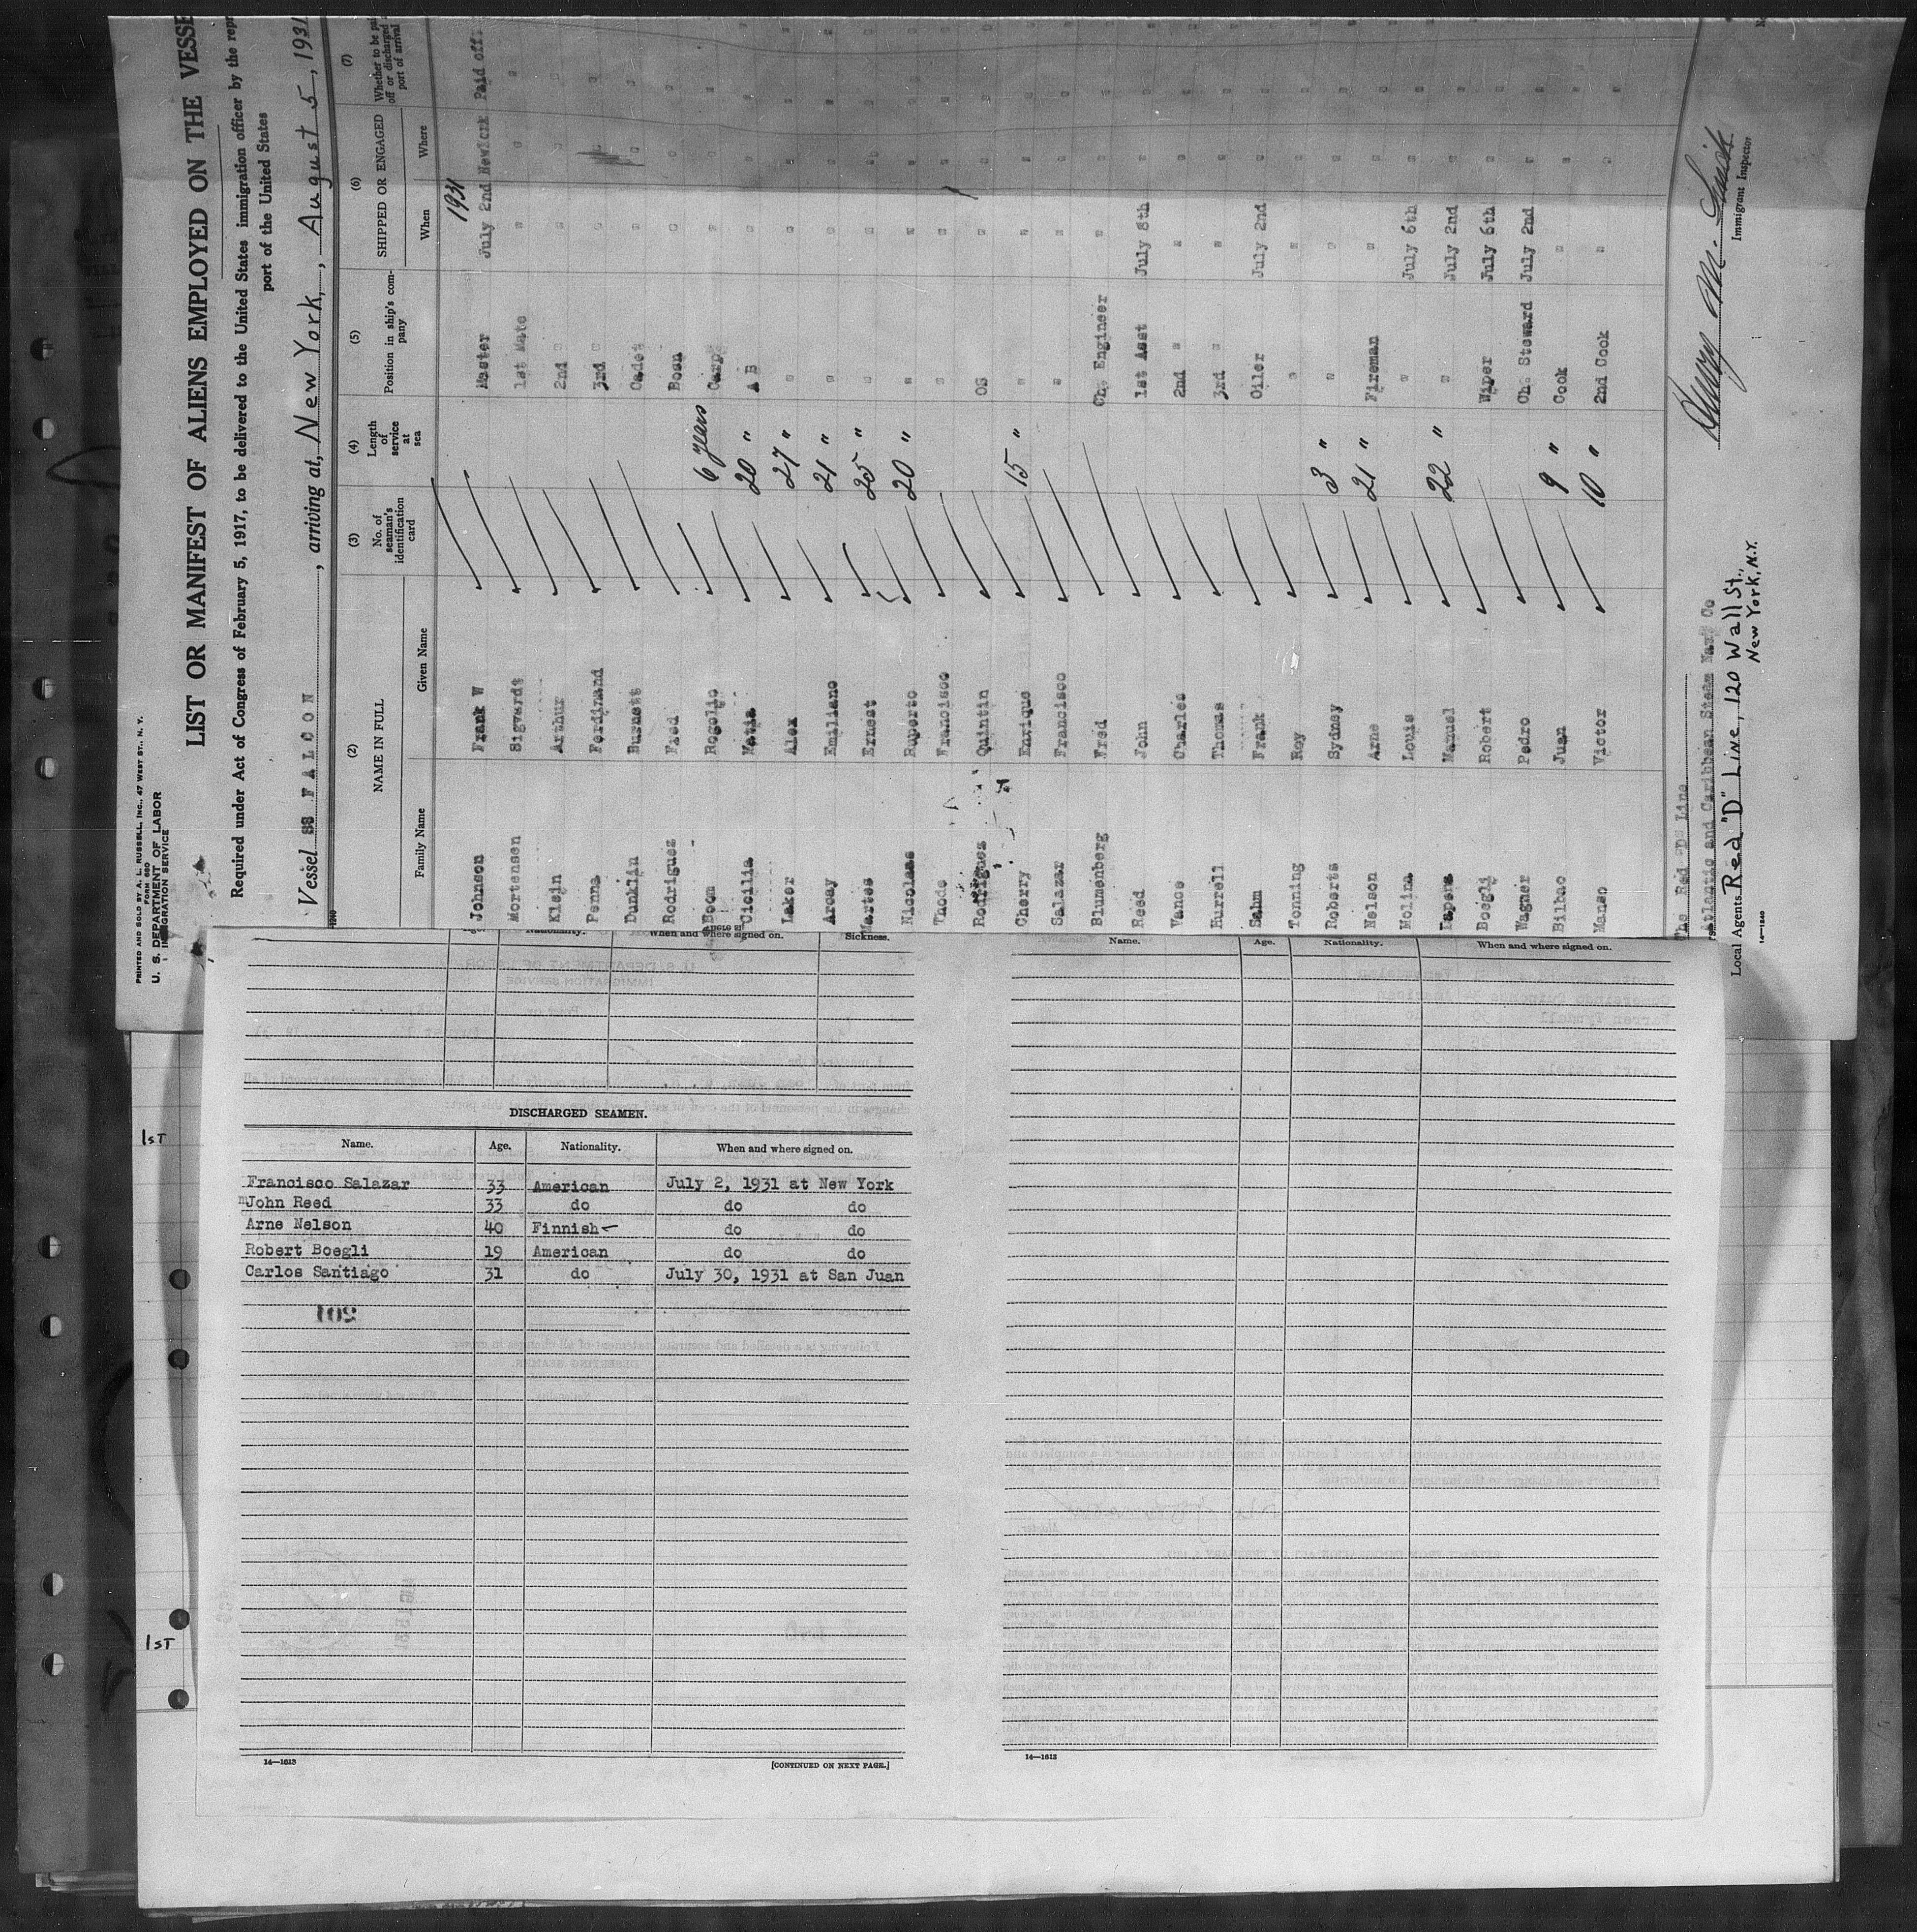 PRINTED AND SOLD BY A. L. RUSSELL, INC., 47 WEST ST., N. Y.
FORM 680
U. S. DEPARTMENT OF LABOR
IMMIGRATION SERVICE
LIST OR MANIFEST OF ALIENS EMPLOYED ON THE VESSE
Required under Act of Congress of February 5, 1917, to be delivered to the United States immigration officer by the repr
port of the United States
Vessel SS FALCON, arriving at, New York, August 5, 1931
(2) (3) (4) (5) (6) (7)
NAME IN FULL
Family Name Given Name
No. of seaman's identification card
Length of service at sea
Position in ship's company
SHIPPED OR ENGAGED
When Where
Whether to be paid off or discharged at port of arrival
1931
Johnson Frank W Master July 2nd NewYork Paid off.
Mortensen Sigvardt 1st Mate " " "
Klein Arthur 2nd " " " "
Penna Ferdinand 3rd " " " "
Dunklin Burnett Cadet " " "
Rodriguez Fred Bosn " " "
Boom Rogelio 6 years Carp " " "
Cicilia Matia 20 " A B " " "
Laker Alex 27 " " " " "
Arcay Emiliano 21 " " " " "
Martes Ernest 25 " " " " "
Nicolaas Ruperto 20 " " " " "
Thode Francisco " " " "
Rodriguez Quintin OS " " "
Cherry Enrique 15 " " " " "
Salazar Francisco " " " "
Blumenberg Fred Ch. Engineer " " "
Reed John 1st Asst July 8th " "
Vance Charles 2nd " " " "
Hurrell Thomas 3rd " " " "
Sahm Frank Oiler July 2nd " "
Tonning Roy " " " "
Roberts Sydney 3 " " " " "
Nelson Arne 21 " Fireman " " "
Molina Louis " July 6th " "
Manuel 22 " " July 2nd " "
Boegli Robert Wiper July 6th " "
Wagner Pedro Ch. Steward July 2nd " "
Bilbao Juan 9 " Cook " " "
Manso Victor 10 " 2nd Cook " " "
The Red "D" Line
Atlantic and Caribbean Steam Nav Co
Local Agents Red "D" Line, 120 Wall St.,
New York, N.Y.
14—1240
Immigrant Inspector
Nationality. When and where signed on. Sickness.
Name. Age. Nationality. When and where signed on.
DISCHARGED SEAMEN.
Name. Age. Nationality. When and where signed on.
Francisco Salazar 33 American July 2, 1931 at New York
John Reed 33 do do do
Arne Nelson 40 Finnish do do
Robert Boegli 19 American do do
Carlos Santiago 31 do July 30, 1931 at San Juan
1ST
1ST
14—1613
[CONTINUED ON NEXT PAGE.]
14—1612